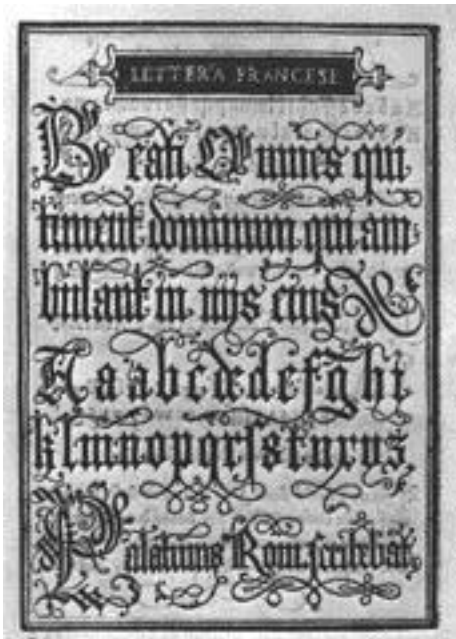 LETTERA FRANCESE
Beati Omnes qui
timent dominum qui am
bulant in vijs eius
A a a b c d d e f g h i
k l m n o p q r ſ s t u x v s
Palatinus Rom. ſcribebat